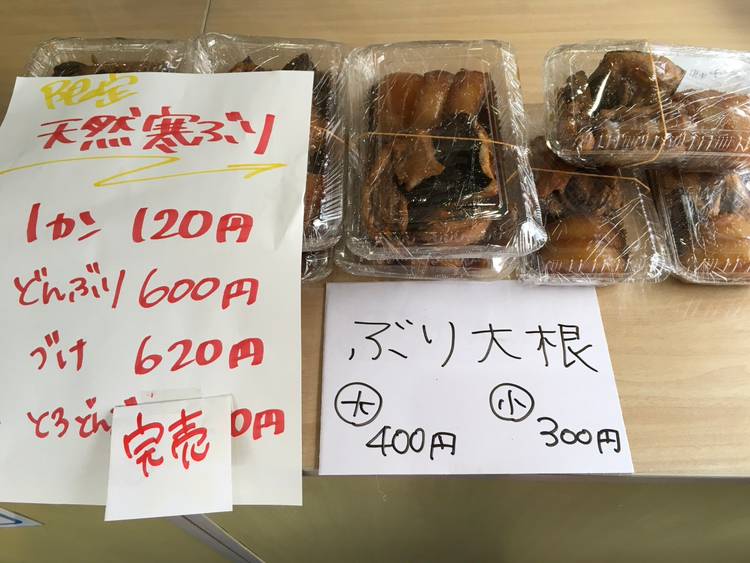 限定
天然寒ぶり
1カン 120円
どんぶり 600円
づけ 620円
とろどん 0円
完売
ぶり大根
大 400円
小 300円